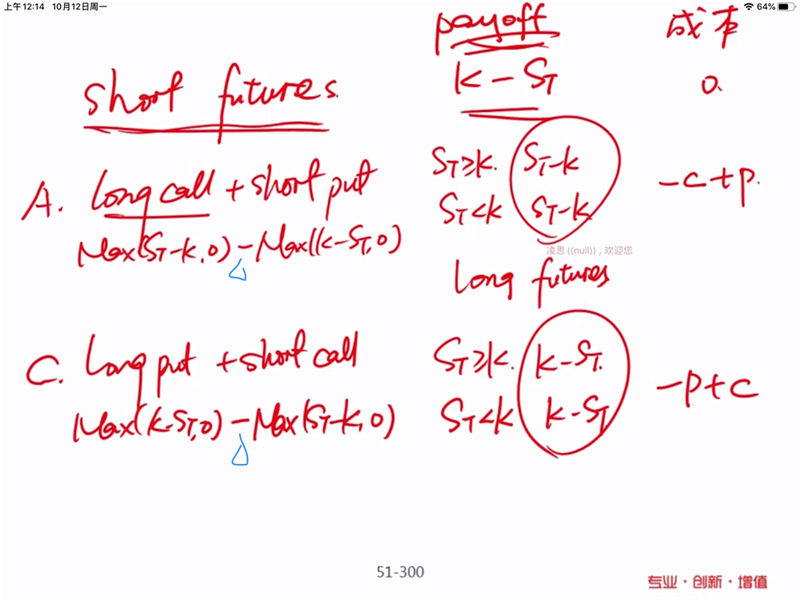 上午12:14 10月12日周一 64%
payoff 成本
short futures. K-ST 0.
A. Long call + short put ST≥K. ST-K -c+p.
Max(ST-K,0)-Max(K-ST,0) ST<K ST-K
凌思 ((null))，欢迎您
Long futures
C. Long put + short call ST≥K. K-ST. -p+c
Max(K-ST,0)-Max(ST-K,0) ST<K K-ST
51-300
专业·创新·增值